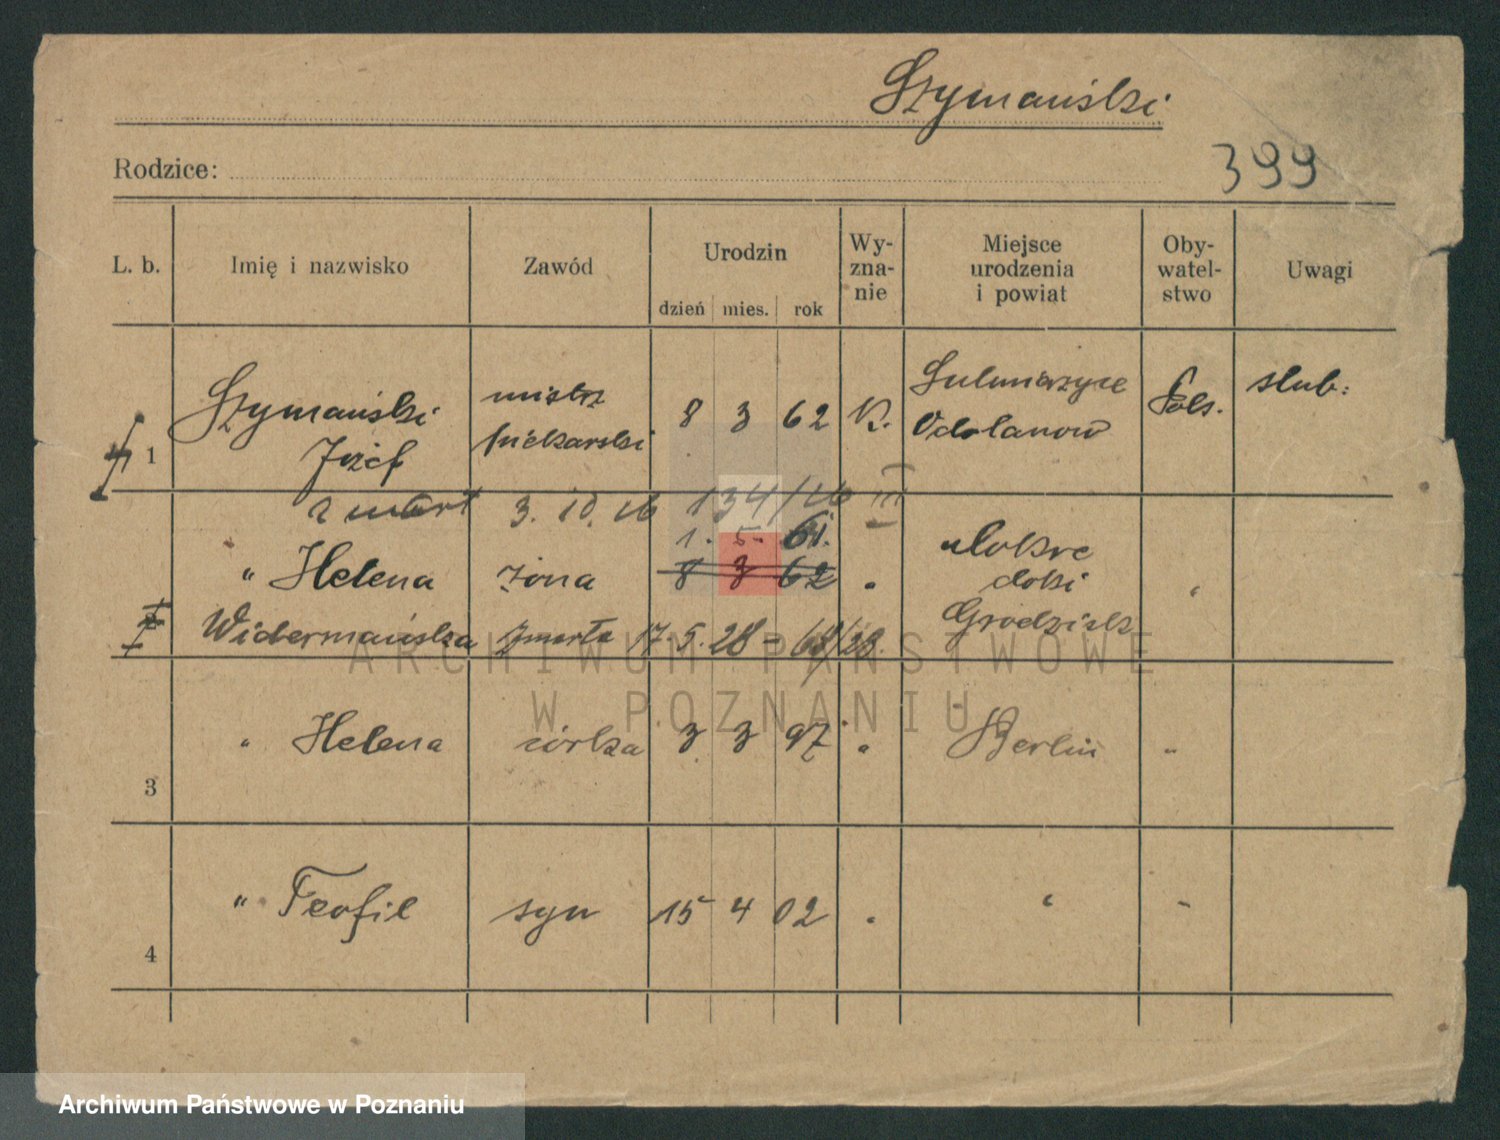 Szymański
Rodzice:
399
L. b. Imię i nazwisko Zawód Urodzin Wy-zna-nie Miejsce urodzenia i powiat Oby-watel-stwo Uwagi
dzień mies. rok
1 Szymański Józef mistrz piekarski 8 3 62 K. Sulmierzyce Odolanow Pols. slub:
zmart 3. 10. 26 134/26 III
1. 5. 61.
" Helena żona 8 3 62 " Mokre "
Widermańska zmarła 17. 5. 28 - 68/28. Grodzisk
3 " Helena córka 3 3 97 " Berlin "
4 " Teofil syn 15 4 02 " " "
ARCHIWUM PAŃSTWOWE
W POZNANIU
Archiwum Państwowe w Poznaniu